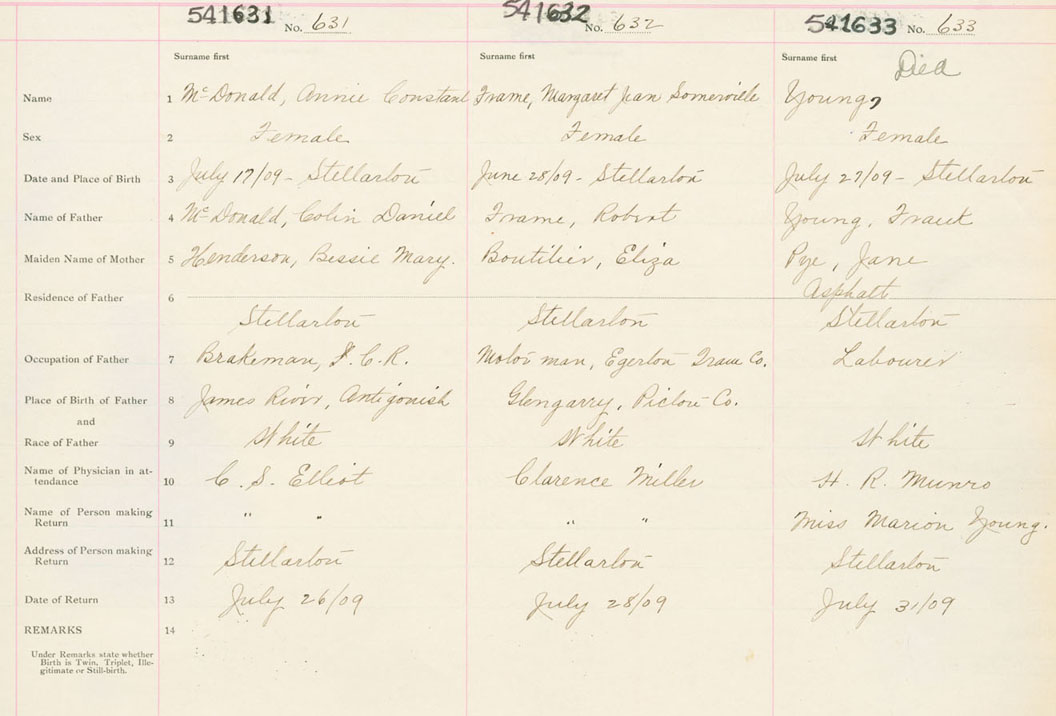 541631 No. 631 541632 No. 632 541633 No. 633
Surname first Surname first Surname first Died
Name 1 McDonald, Annie Constant Frame, Margaret Jean Somerville Young,
Sex 2 Female Female Female
Date and Place of Birth 3 July 17/09 - Stellarton June 28/09 - Stellarton July 27/09 - Stellarton
Name of Father 4 McDonald, Colin Daniel Frame, Robert Young, Frank
Maiden Name of Mother 5 Henderson, Bessie Mary. Boutilier, Eliza Pye, Jane
Asphalt
Residence of Father 6
Stellarton Stellarton Stellarton
Occupation of Father 7 Brakeman, I.C.R. Motor man, Egerton Tram Co. Labourer
Place of Birth of Father 8 James River, Antigonish Glengarry, Pictou Co.
and
Race of Father 9 White White White
Name of Physician in at-
tendance 10 C. S. Elliot Clarence Miller H. R. Munro
Name of Person making
Return 11 " " " " Miss Marion Young.
Address of Person making
Return 12 Stellarton Stellarton Stellarton
Date of Return 13 July 26/09 July 28/09 July 31/09
REMARKS 14
Under Remarks state whether
Birth is Twin, Triplet, Ille-
gitimate or Still-birth.